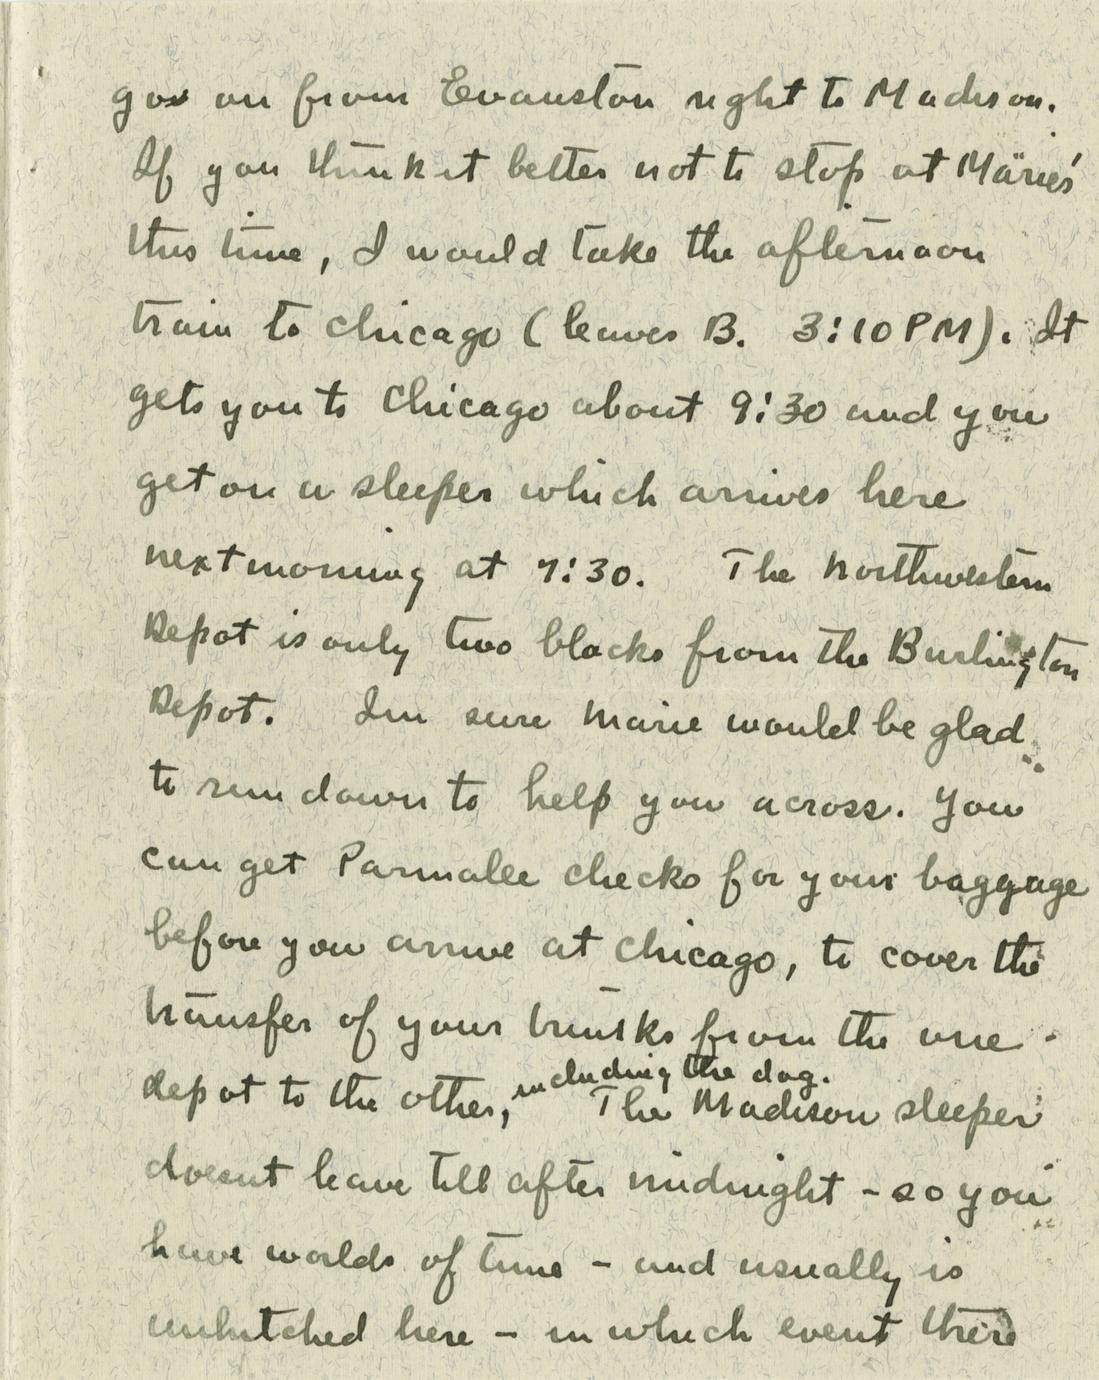 go on from Evanston right to Madison.
If you think it better not to stop at Marie's
this time, I would take the afternoon
train to Chicago (leaves B. 3:10 PM). It
gets you to Chicago about 9:30 and you
get on a sleeper which arrives here
next morning at 7:30. The Northwestern
Depot is only two blocks from the Burlington
Depot. Im sure Marie would be glad
to run down to help you across. You
can get Parmalee checks for your baggage
before you arrive at Chicago, to cover the
transfer of your trunks from the one
depot to the other, including the dog. The Madison sleeper
doesnt leave till after midnight - so you
have worlds of time - and usually is
unhitched here - in which event there